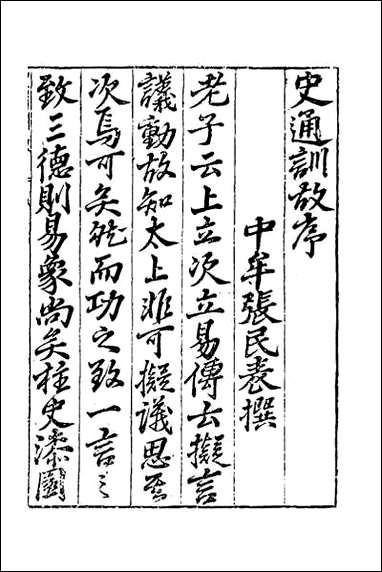 史通訓故序
中牟張民表撰
老子云上立次立易傳云擬言
議動故知太上非可擬議思焉
次焉可矣然而功之致一言之
致三德則易象尚矣柱史漆園